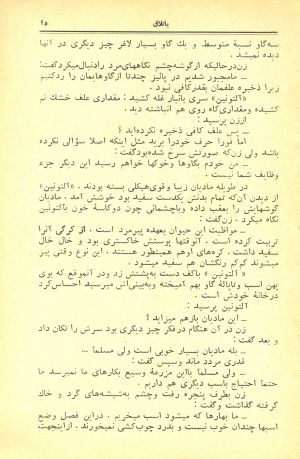 باتلاق
۴۵
سه‌گاو نسبة متوسط و یك گاو بسیار لاغر چیز دیگری در آنها
دیده نمیشد .
زن‌درحالیکه ازگوشه‌چشم نگاههای‌مرد رادنبال‌میکردگفت:
ــ مامجبور شدیم در پائیز چندتا ازگاوهایمان را ردکنیم
زیرا ذخیره علفمان بقدرکافی نبود .
«آلتونین» سری بانبار غله کشید : مقداری علف خشك نم
کشیده ومقداری‌کاه روی هم انباشته شده بود .
اززن پرسید :
ــ پس علف کافی ذخیره نکرده‌اید ؟
اما فورا حرف خودرا برید مثل اینکه اصلا سؤالی نکرده
باشد ولی زن‌که صورتش سرخ شده‌بودگفت :
ــ من خودم بگاوها وخوکها خواهم رسید این دیگر جزء
وظایف شما نیست .
در طویله مادیان زیبا وقوی‌هیکلی بسته بودند . «آلتونین»
از دیدن آن‌که تمام بدنش یکدست سفید بود خوشش آمد . مادیان
گوشهایش را بعقب داده وباچشمانی چون دوکاسهٔ خون بآلتونین
نگاه میکرد . زن‌گفت :
ــ مواظبت این حیوان بعهده پیرمرد است. از کرگی آنرا
تربیت کرده است . آنوقتها پوستش خاکستری بود و خال خال
سفید داشت. کره‌های اوهم همینطور هستند . این نوع وقتی پیر
میشوند کم‌کم رنگشان هم سفید میشود .
« آلتونین » باکف دست به‌پشتش زد ودر آنموقع که بوی
پهن اسب وتاپالهٔ گاو بهم آمیخته وبه‌بینی‌اش میرسید احساس‌کرد
درخانهٔ خودش است .
ــ این مادیان بازهم میزاید ؟
زن در آن هنگام درفکر چیز دیگری بود سرش را تکان داد
و بعد گفت :
ــ بله مادیان بسیار خوبی است ولی مسلماً ...
قدری مردد ماند وسپس گفت :
ــ ولی مسلما بااین مزرعهٔ وسیع بکارهای ما نمیرسد ما
حتما احتیاج باسب دیگری هم داریم .
بعد بطرف پنجره رفت وچشم به‌شیشه‌های گرد و خاك
گرفته گماشت وگفت :
ــ ما بهارها که میشود اسب میخریم . دراین فصل وضع
اسبها چندان خوب نیست و بدرد چوب‌کشی نمیخورند . ازاینجهت